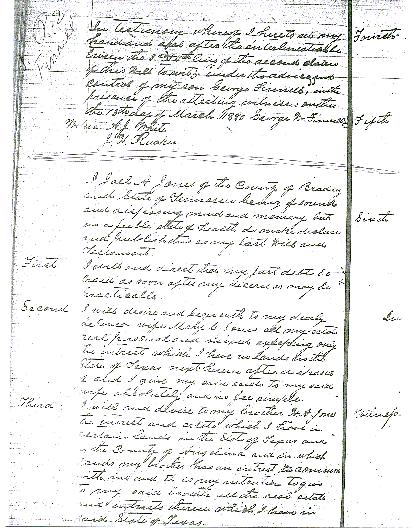 In testimony whereof I hereto set my
hand and seal after the interlineation
between the
of this will to wit, under the advice and
control of my son George Finnell, in the
presence of the attesting witnesses on this
the 13th day of March 1880 George W. Finnell
Witness A. J. White
J. H. Rucker
Fourth
Fifth
I Joel A Jones of the County of Bradley
and State of Tennessee being of sound
and disposing mind and memory but
in a feeble state of health do make declare
and publish this as my last Will and
Testament.
Sixth
First I will and direct that my just debts be
paid as soon after my decease as may be
practicable.
Second I will desire and bequeath to my dearly
beloved wife Mary E Jones all my estate
real personal and mixed excepting only
the interest which I have in lands in the
State of Texas
and I give my said estate to my said
wife absolutely and in fee simple.
Third I will and devise to my brother W. A. Jones
the interest and estate which I have in
certain lands in the State of Texas and
in the County of Angelina and in which
lands my brother has an interest in common
with me and it is my intention to give
to my said brother all the real estate
and interests therein which I have in
said State of Texas.